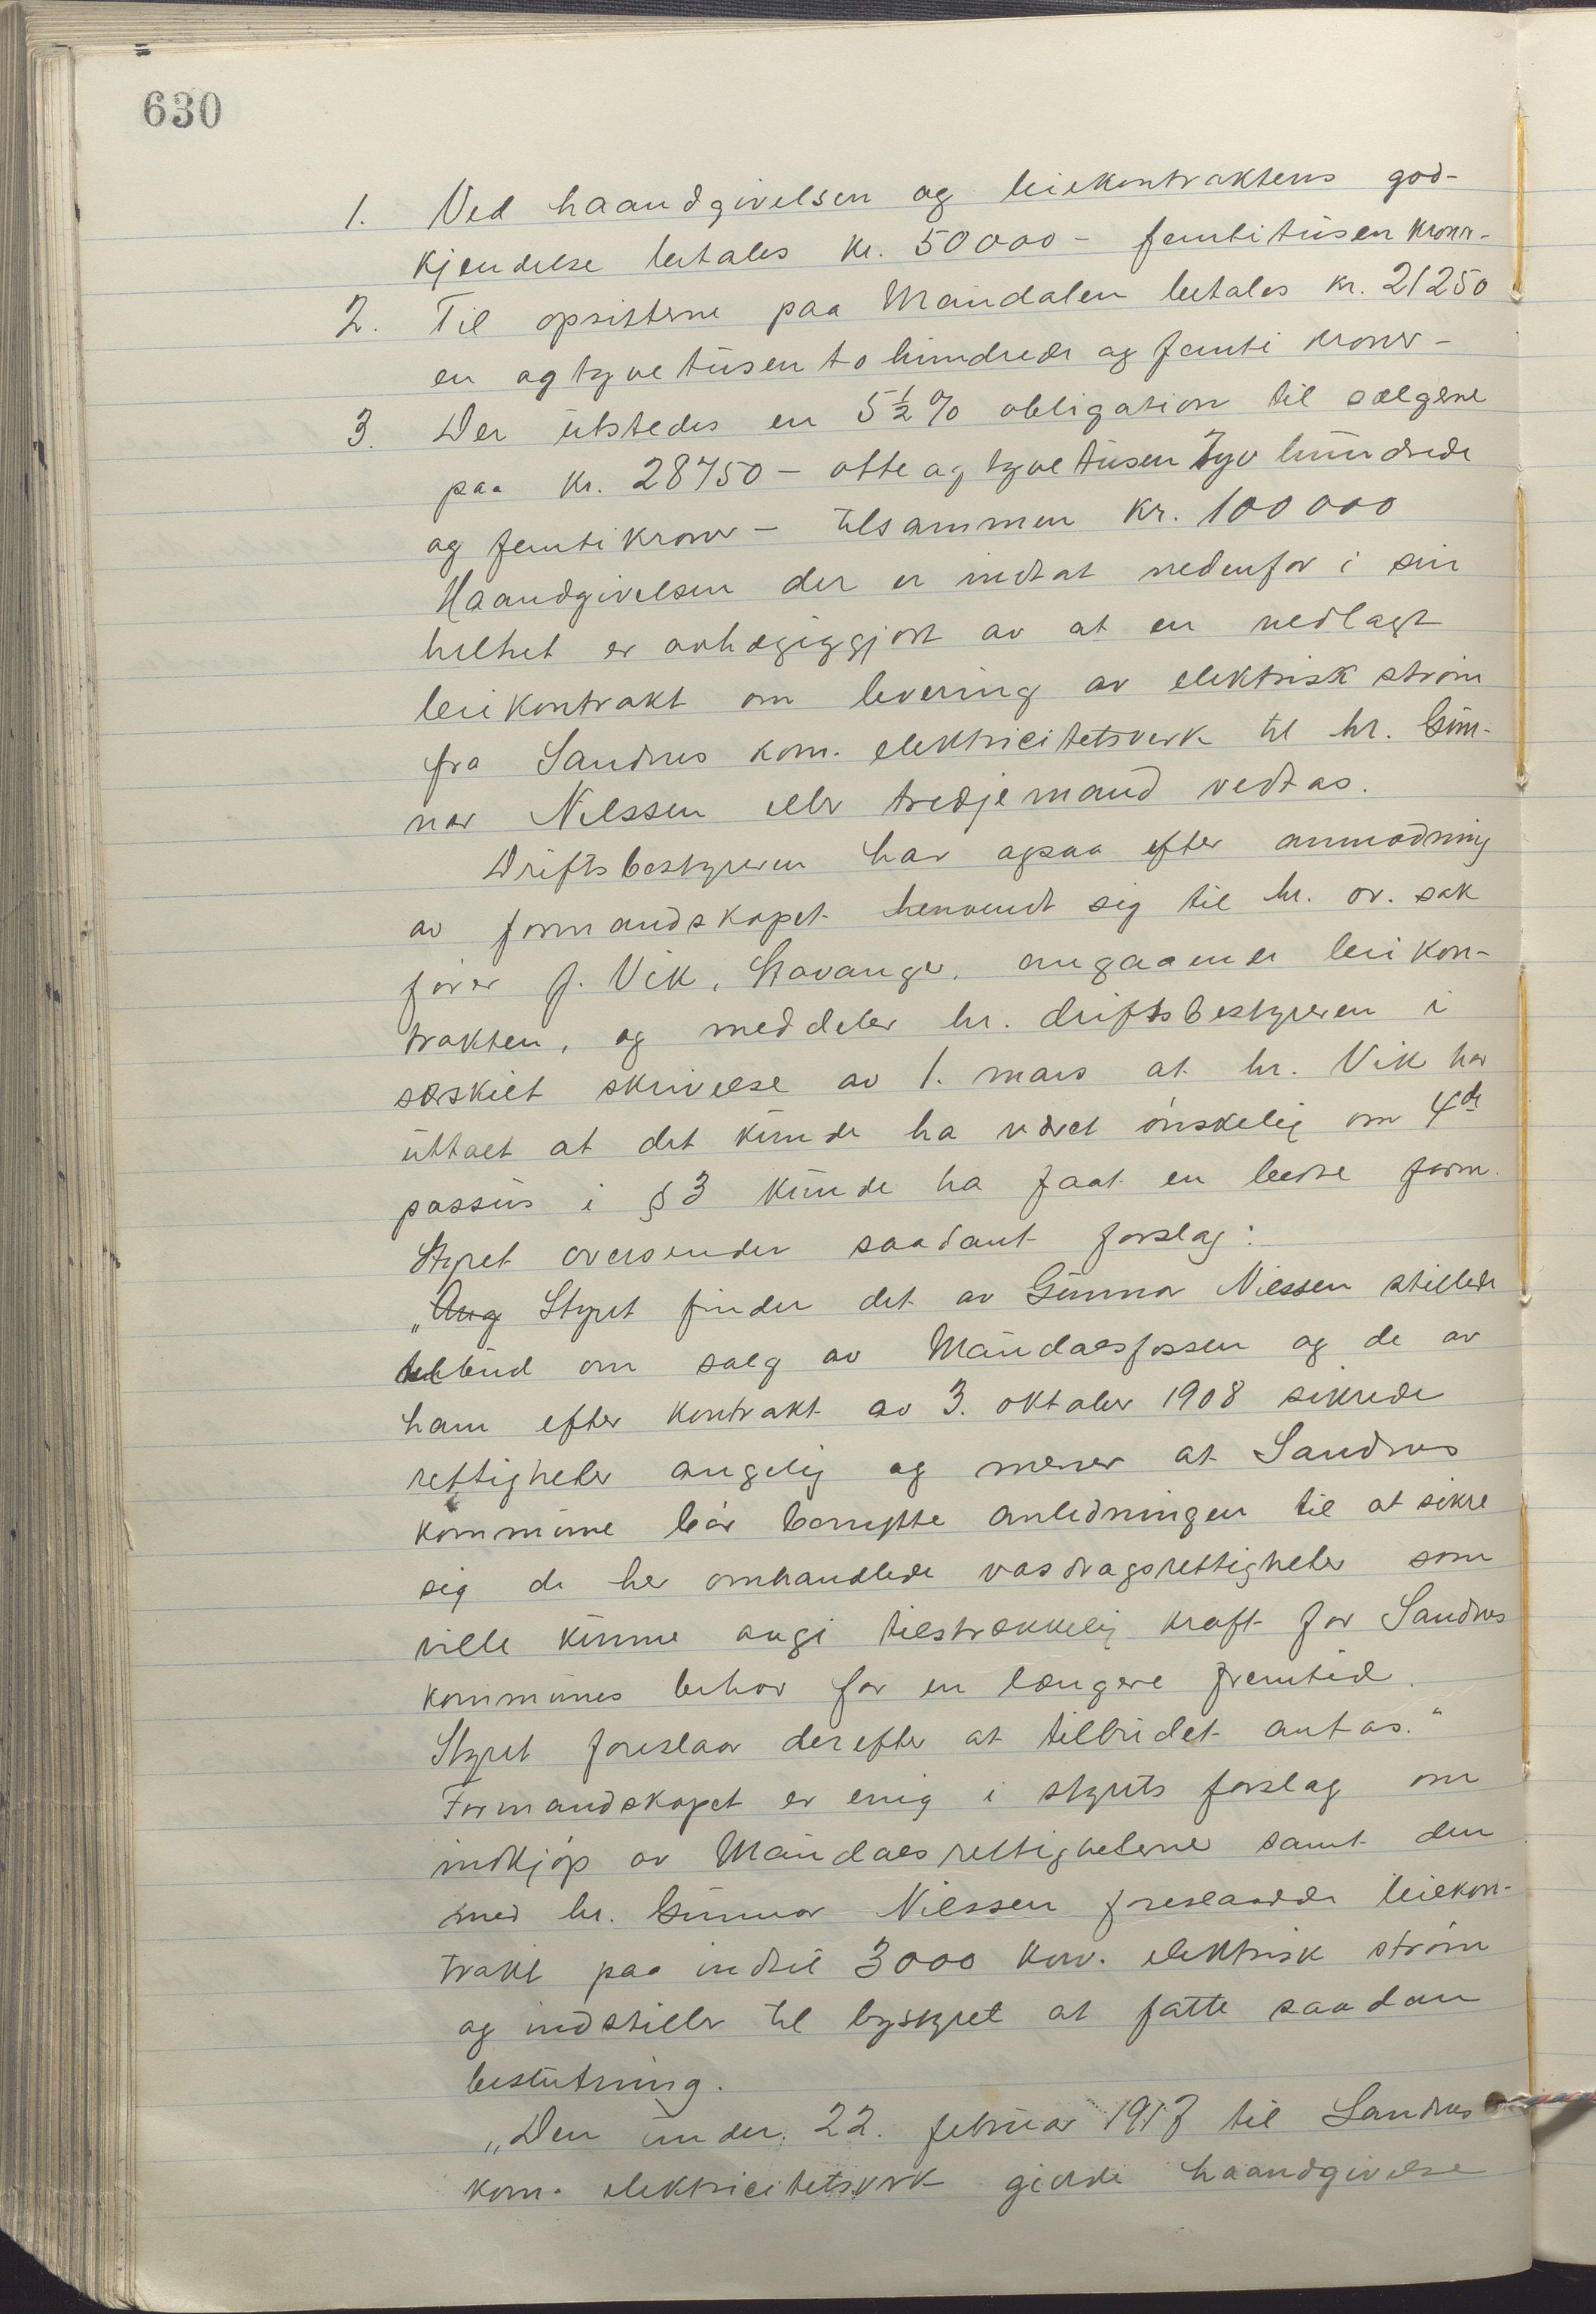 630
1. Ved haandgivelsen og leiekontraktens god-
kjendelse betales kr. 50000 - femtitusen kron-
2. Til opsitterne paa Maudalen betales kr. 21250
en og tyve tusen to hundrede og femti kroner -
3. Der utstedes en 5½ % obligation til sælgerne
paa kr. 28750 - otte og tyve tusen syv hundrede
og femti kroner - tilsammen kr. 100000
Haandgivelsen der er indtat nedenfor i sin
helhet er avhægiggjort av at en vedlagt
leiekontrakt om levering av elektrisk strøm
fra Sandnes kom. elektricitetsverk til hr. Gun-
nar Nilssen eller tredjemand vedtas.
Driftsbestyreren har ogsaa efter anmodning
av formandskapet henvendt sig til hr. or. sak
fører J. Vik, Stavanger, angaaende leiekon-
trakten, og meddeler hr. driftsbestyreren i
særskilt skrivelse av 1. mars at hr. Vik har
uttalt at det kunde ha været ønskelig om 4de
passus i § 3 kunde ha faat en bedre form.
Styret oversender saadant forslag:
"Ang Styret finder det av Gunnar Nilssen stillede
tilbud om salg av Maudalsfossen og de av
ham efter kontrakt av 3. oktober 1908 sikrede
rettigheter antagelig og mener at Sandnes
kommune bør benytte anledningen til at sikre
sig de her omhandlede vasdragsrettigheter som
ville kunne avgi tilstrækkelig kraft for Sandnes
kommunes behov for en længere fremtid.
Styret foreslaar derefter at tilbudet antas."
Formandskapet er enig i styrets forslag om
indkjøp av Maudalsrettighetene samt den
med hr. Gunnar Nilssen foreslaadde leiekon-
trakt paa indtil 3000 kw. elektrisk strøm
og indstiller til bystyret at fatte saadan
beslutning.
"Den under 22. februar 1917 til Sandnes
kom. elektricitetsverk givne haandgivelse